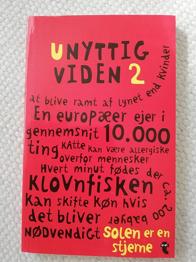 UNYTTIG
VIDEN 2
at blive ramt af lynet end kvinder
En europæer ejer i
gennemsnit 10.000
ting Katte kan være allergiske
overfor mennesker
Hvert minut fødes der ca. 200
Klovnfisken
kan skifte køn hvis babyer
det bliver
nødvendigt Solen er en
stjerne